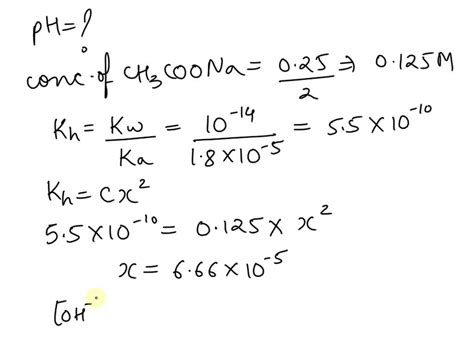 pH = ?
conc. of CH₃COONa = 0.25/2 ⇒ 0.125M
Kh = Kw/Ka = 10⁻¹⁴/1.8×10⁻⁵ = 5.5×10⁻¹⁰
Kh = Cx²
5.5×10⁻¹⁰ = 0.125 × x²
x = 6.66×10⁻⁵
[OH⁻